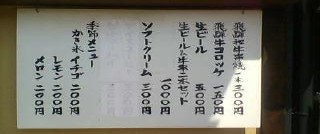 飛騨牛串焼一本三〇〇円
飛騨牛コロッケ 一五〇円
生ビール 五〇〇円
生ビールと牛串二本セット
一〇〇〇円
ソフトクリーム 三〇〇円
季節メニュー
かき氷 イチゴ 二〇〇円
レモン 二〇〇円
メロン 二〇〇円